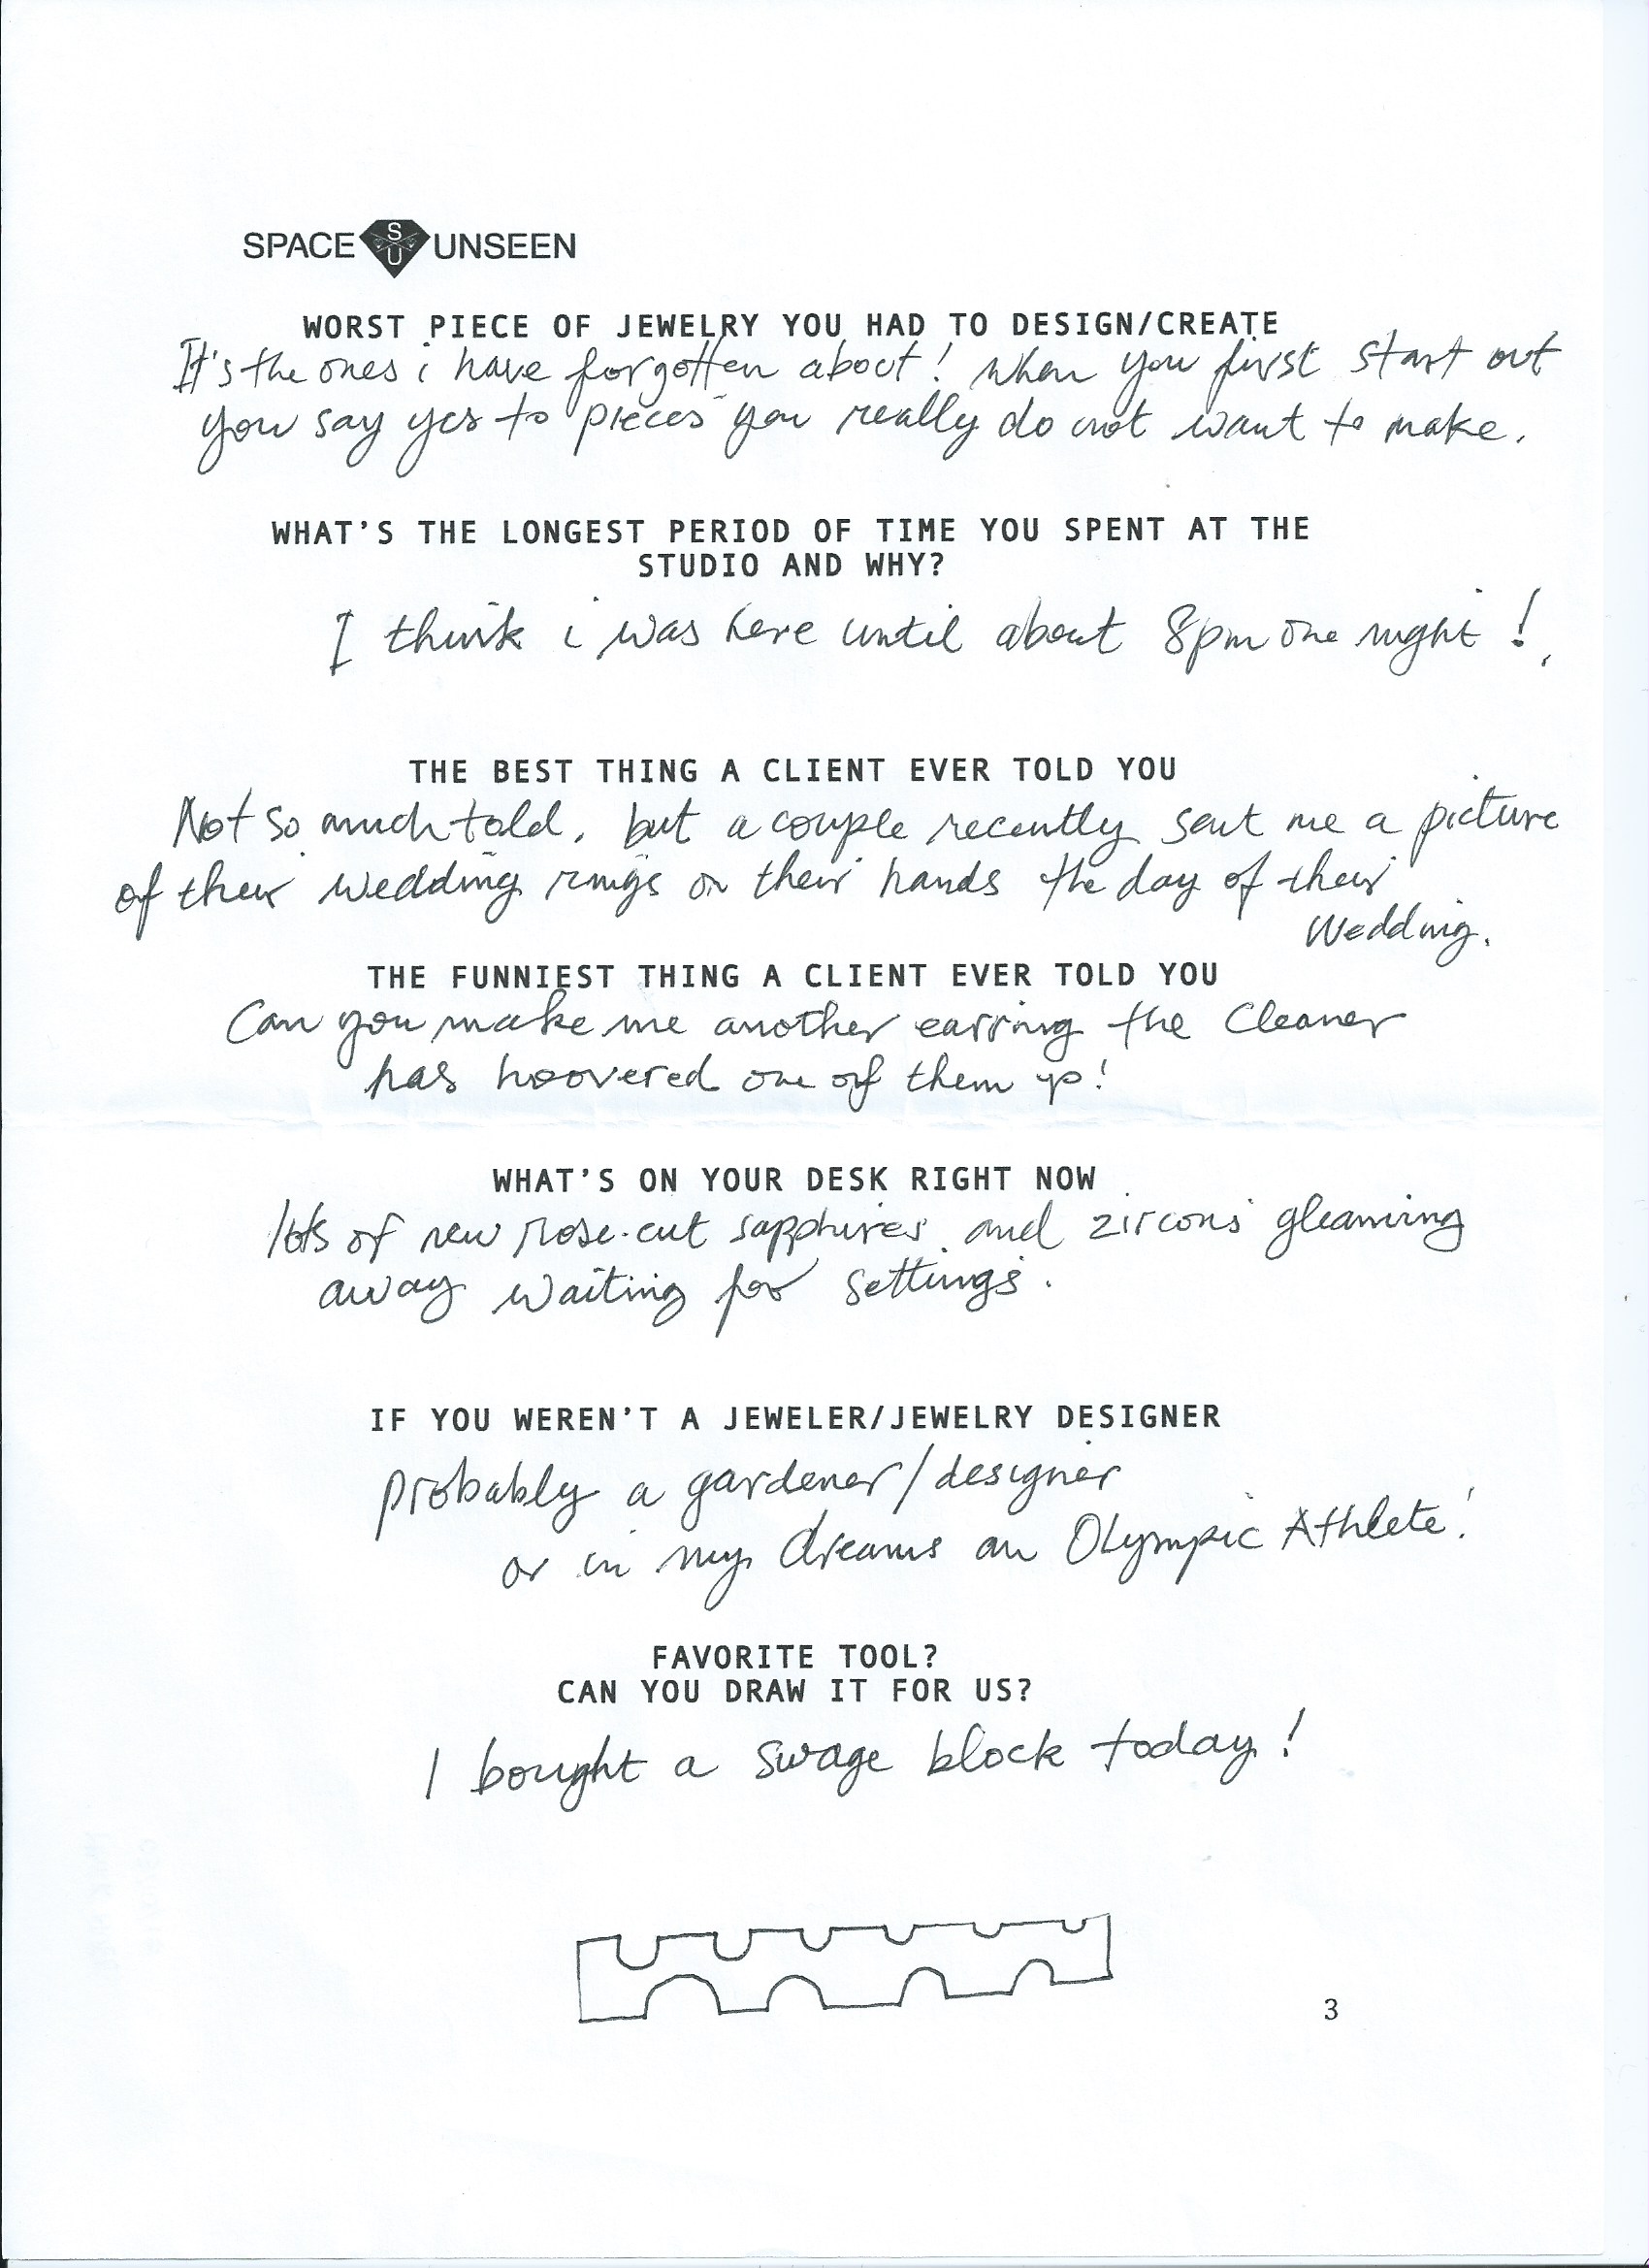 SPACE SU UNSEEN
WORST PIECE OF JEWELRY YOU HAD TO DESIGN/CREATE
It's the ones i have forgotten about! When you first start out
you say yes to pieces you really do not want to make.
WHAT'S THE LONGEST PERIOD OF TIME YOU SPENT AT THE
STUDIO AND WHY?
I think i was here until about 8pm one night!
THE BEST THING A CLIENT EVER TOLD YOU
Not so much told, but a couple recently sent me a picture
of their wedding rings on their hands the day of their
Wedding.
THE FUNNIEST THING A CLIENT EVER TOLD YOU
Can you make me another earring the Cleaner
has hoovered one of them up!
WHAT'S ON YOUR DESK RIGHT NOW
lots of new rose-cut sapphires and zircons gleaming
away waiting for settings.
IF YOU WEREN'T A JEWELER/JEWELRY DESIGNER
probably a gardener/designer
or in my dreams an Olympic Athlete!
FAVORITE TOOL?
CAN YOU DRAW IT FOR US?
I bought a swage block today!
3